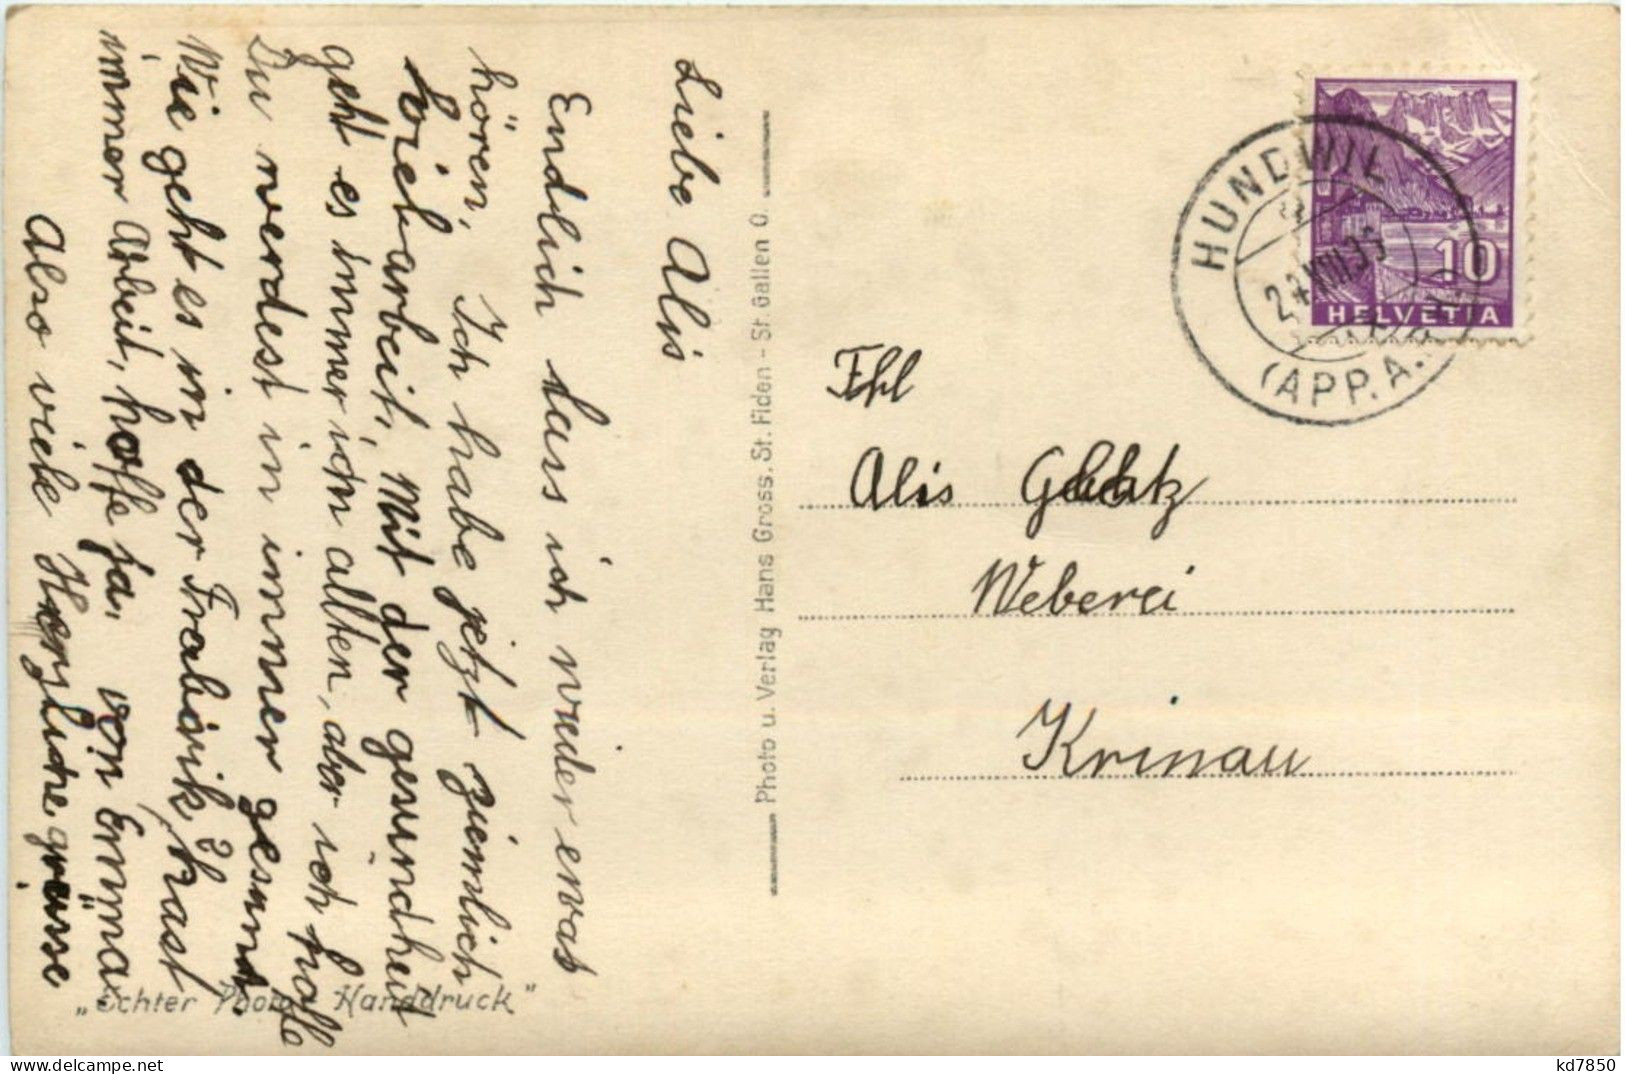 Liebe Alis
Endlich lass ich wieder etwas
hören, Ich habe jetzt ziemlich
viel arbeit, Mit der gesundheit
geht es immer ich alten, aber ich hoffe
Du werdest in immer gesund.
Wie geht es in der Frabrik, hast
immer Arbeit, hoffe ja. von Emma
Also viele Herzliche grüsse
Photo u. Verlag Hans Gross, St. Fiden - St. Gallen O.
"Echter Photo Handdruck"
HUNDWIL
(APP. A.
10
HELVETIA
Alis
Weberei
Krinau
kd7850